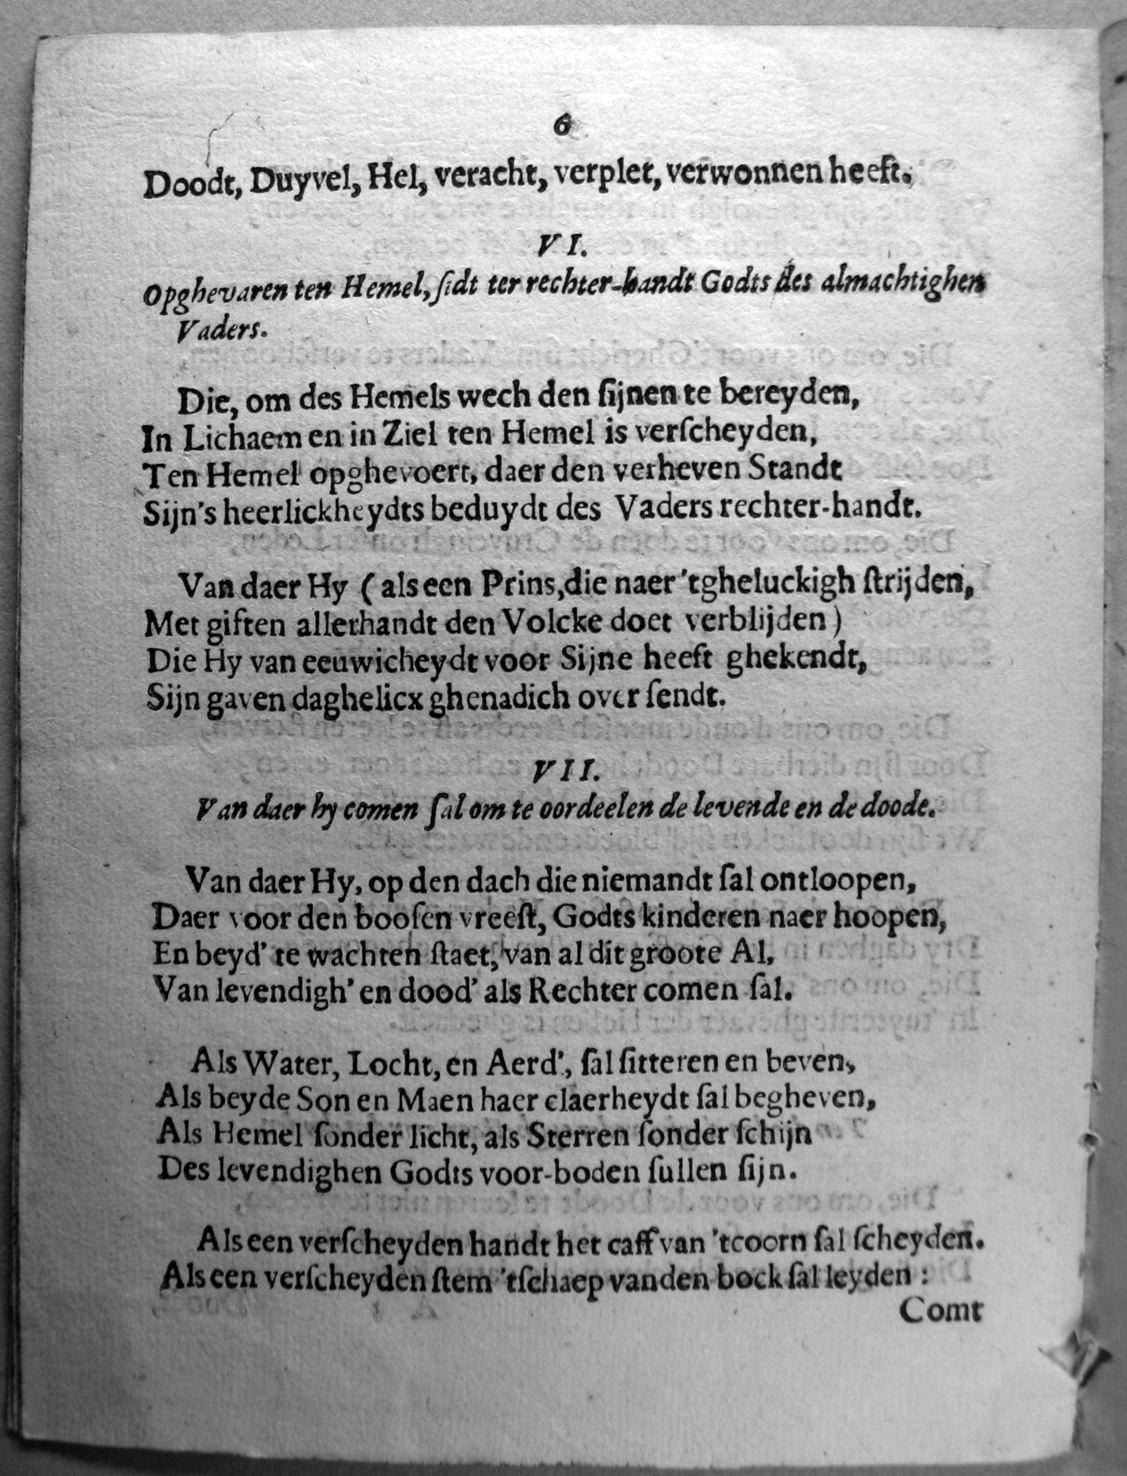 6
Doodt, Duyvel, Hel, veracht, verplet, verwonnen heeft.
VI.
Opghevaren ten Hemel, ſidt ter rechter-handt Godts des almachtighen
Vaders.
Die, om des Hemels wech den ſijnen te bereyden,
In Lichaem en in Ziel ten Hemel is verſcheyden,
Ten Hemel opghevoert, daer den verheven Standt
Sijn's heerlickheydts beduydt des Vaders rechter-handt.
Van daer Hy (als een Prins, die naer 'tgheluckigh ſtrijden,
Met giften allerhandt den Volcke doet verblijden)
Die Hy van eeuwicheydt voor Sijne heeft ghekendt,
Sijn gaven daghelicx ghenadich over ſendt.
VII.
Van daer hy comen ſal om te oordeelen de levende en de doode.
Van daer Hy, op den dach die niemandt ſal ontloopen,
Daer voor den booſen vreeſt, Godts kinderen naer hoopen,
En beyd' te wachten ſtaet, van al dit groote Al,
Van levendigh' en dood' als Rechter comen ſal.
Als Water, Locht, en Aerd', ſal ſitteren en beven,
Als beyde Son en Maen haer claerheydt ſal begheven,
Als Hemel ſonder licht, als Sterren ſonder ſchijn
Des levendighen Godts voor-boden ſullen ſijn.
Als een verſcheyden handt het caff van 'tcoorn ſal ſcheyden.
Als een verſcheyden ſtem 'tſchaep vanden bock ſal leyden:
Comt